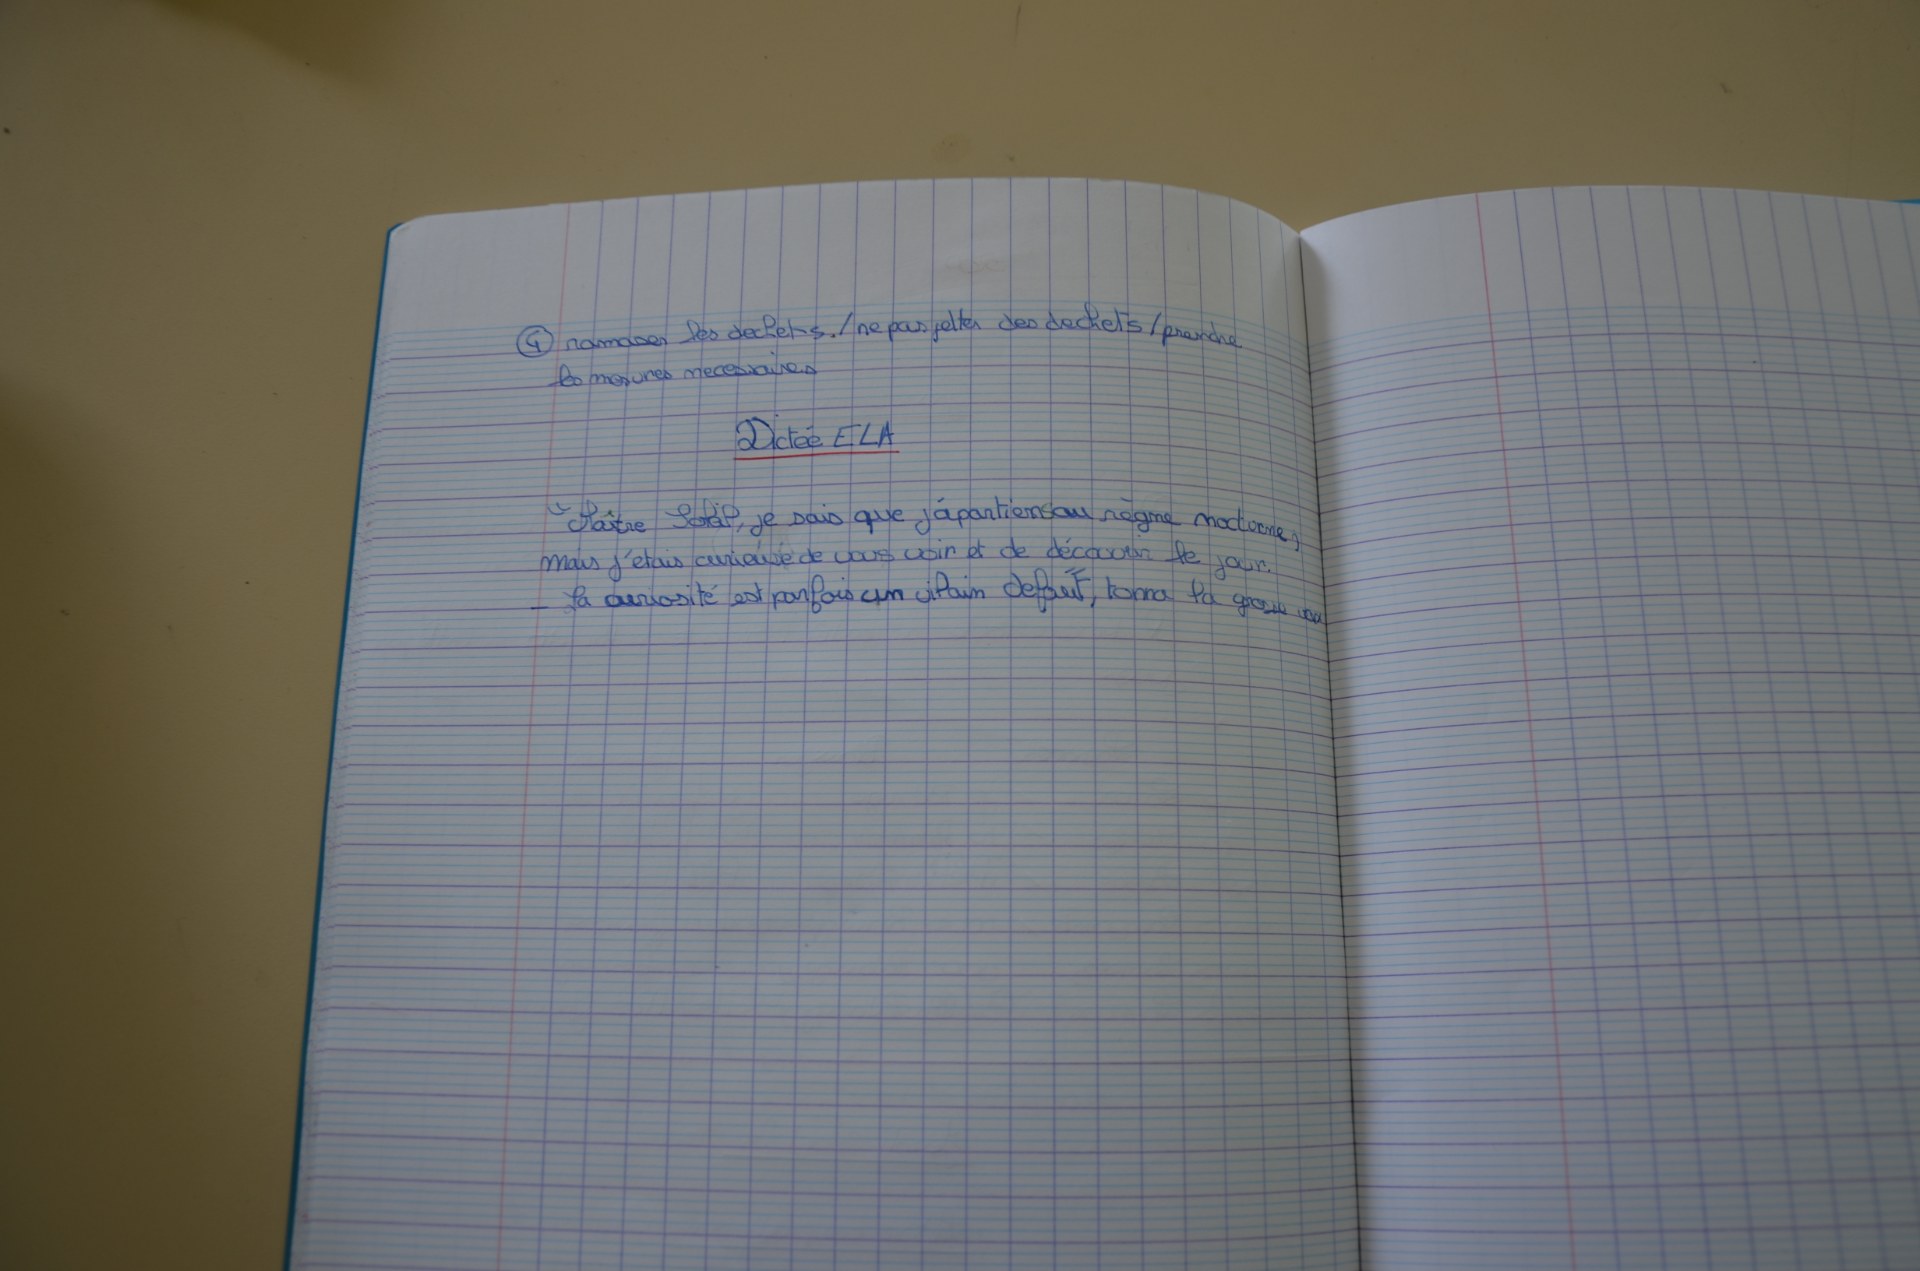 ④ ramaser les dechets. / ne pas jetter des dechets / prendre
les mesures necessaires
Dictée ELA
- Maître Soleil, je sais que j'apartiens au règme noctorne,
mais j'étais curieuse de vous voir et de découvrir le jour.
- La curiosité est parfois un vilain defaut, tonna la grosse